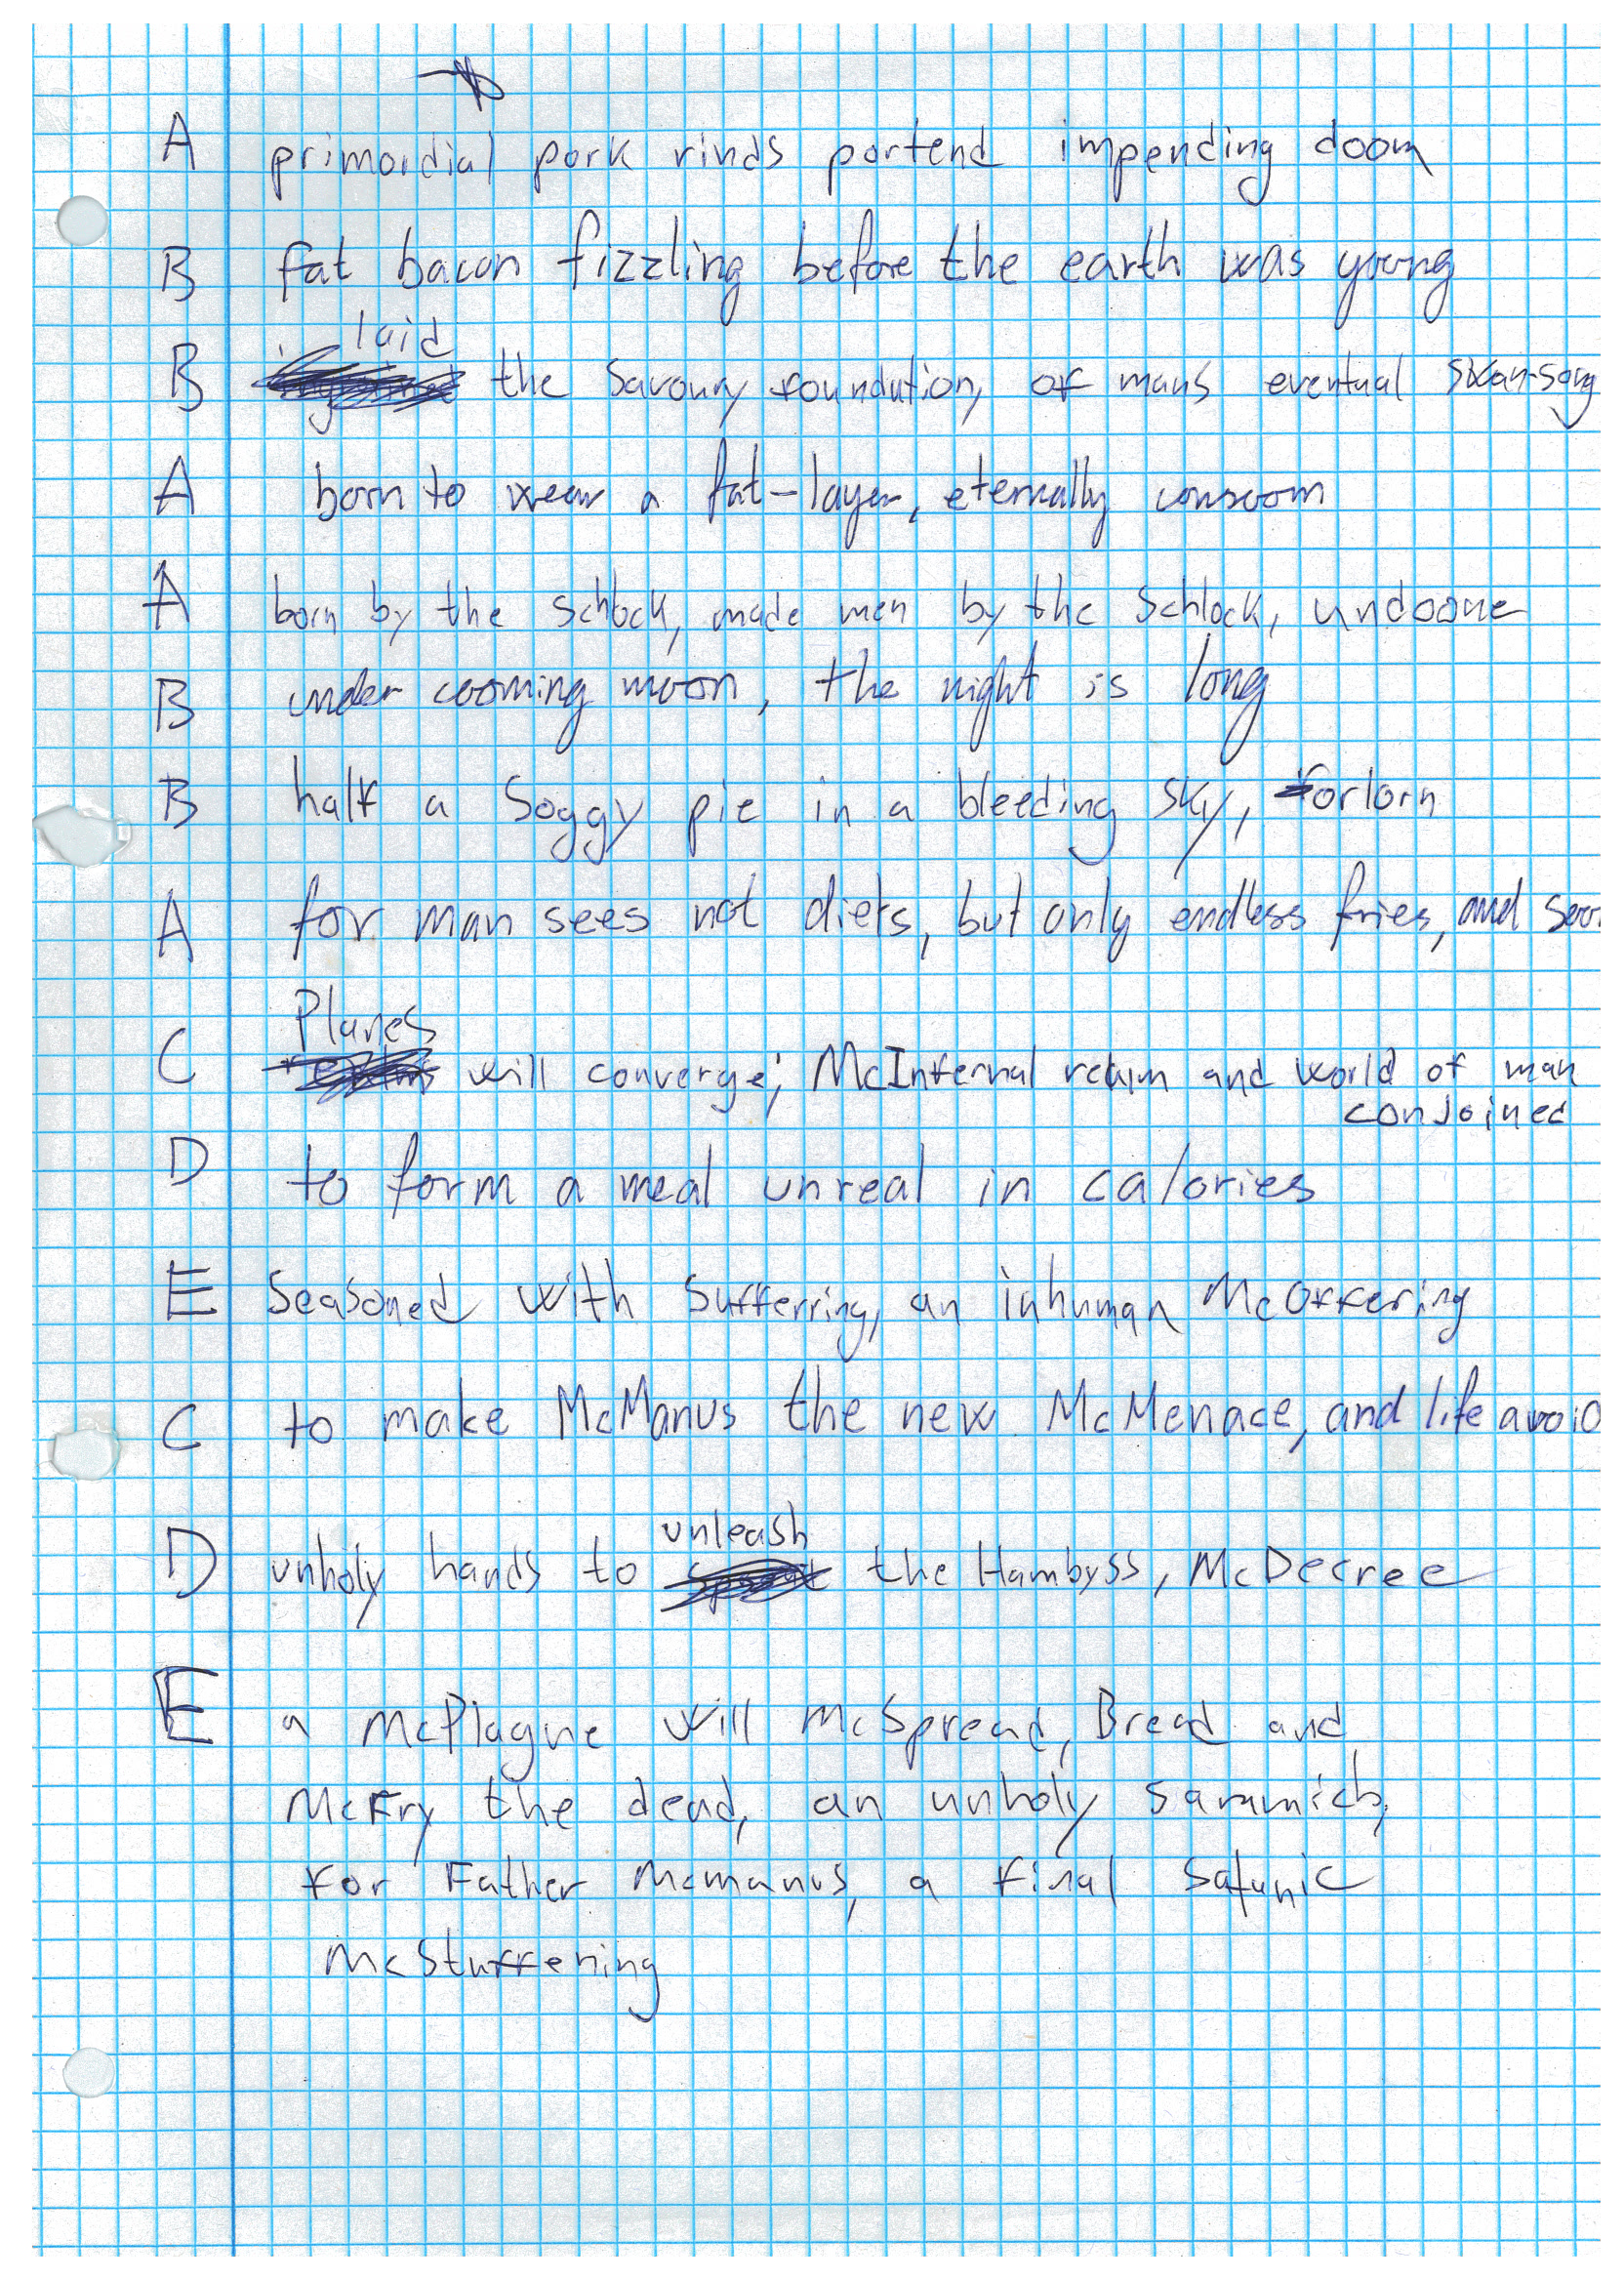 A primordial pork rinds portend impending doom
B fat bacon fizzling before the earth was young
laid
B the savoury foundation, of mans eventual swan-song
A born to wear a fat-layer, eternally consoom
A born by the schlock, made men by the schlock, undoone
B under cooming moon, the night is long
B half a soggy pie in a bleeding sky, forlorn
A for man sees not diets, but only endless fries, and soon
Planes
C will converge; McInfernal realm and world of man
conjoined
D to form a meal unreal in calories
E Seasoned with Sufferring, an inhuman McOffering
C to make McManus the new McMenace, and life avoid
unleash
D unholy hands to the Hambyss, McDecree
E a McPlague will McSpread, Bread and
McFry the dead, an unholy sammich,
for Father Mcmanus, a final satanic
McStuffering